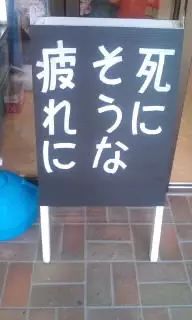 死に
そうな
疲れに